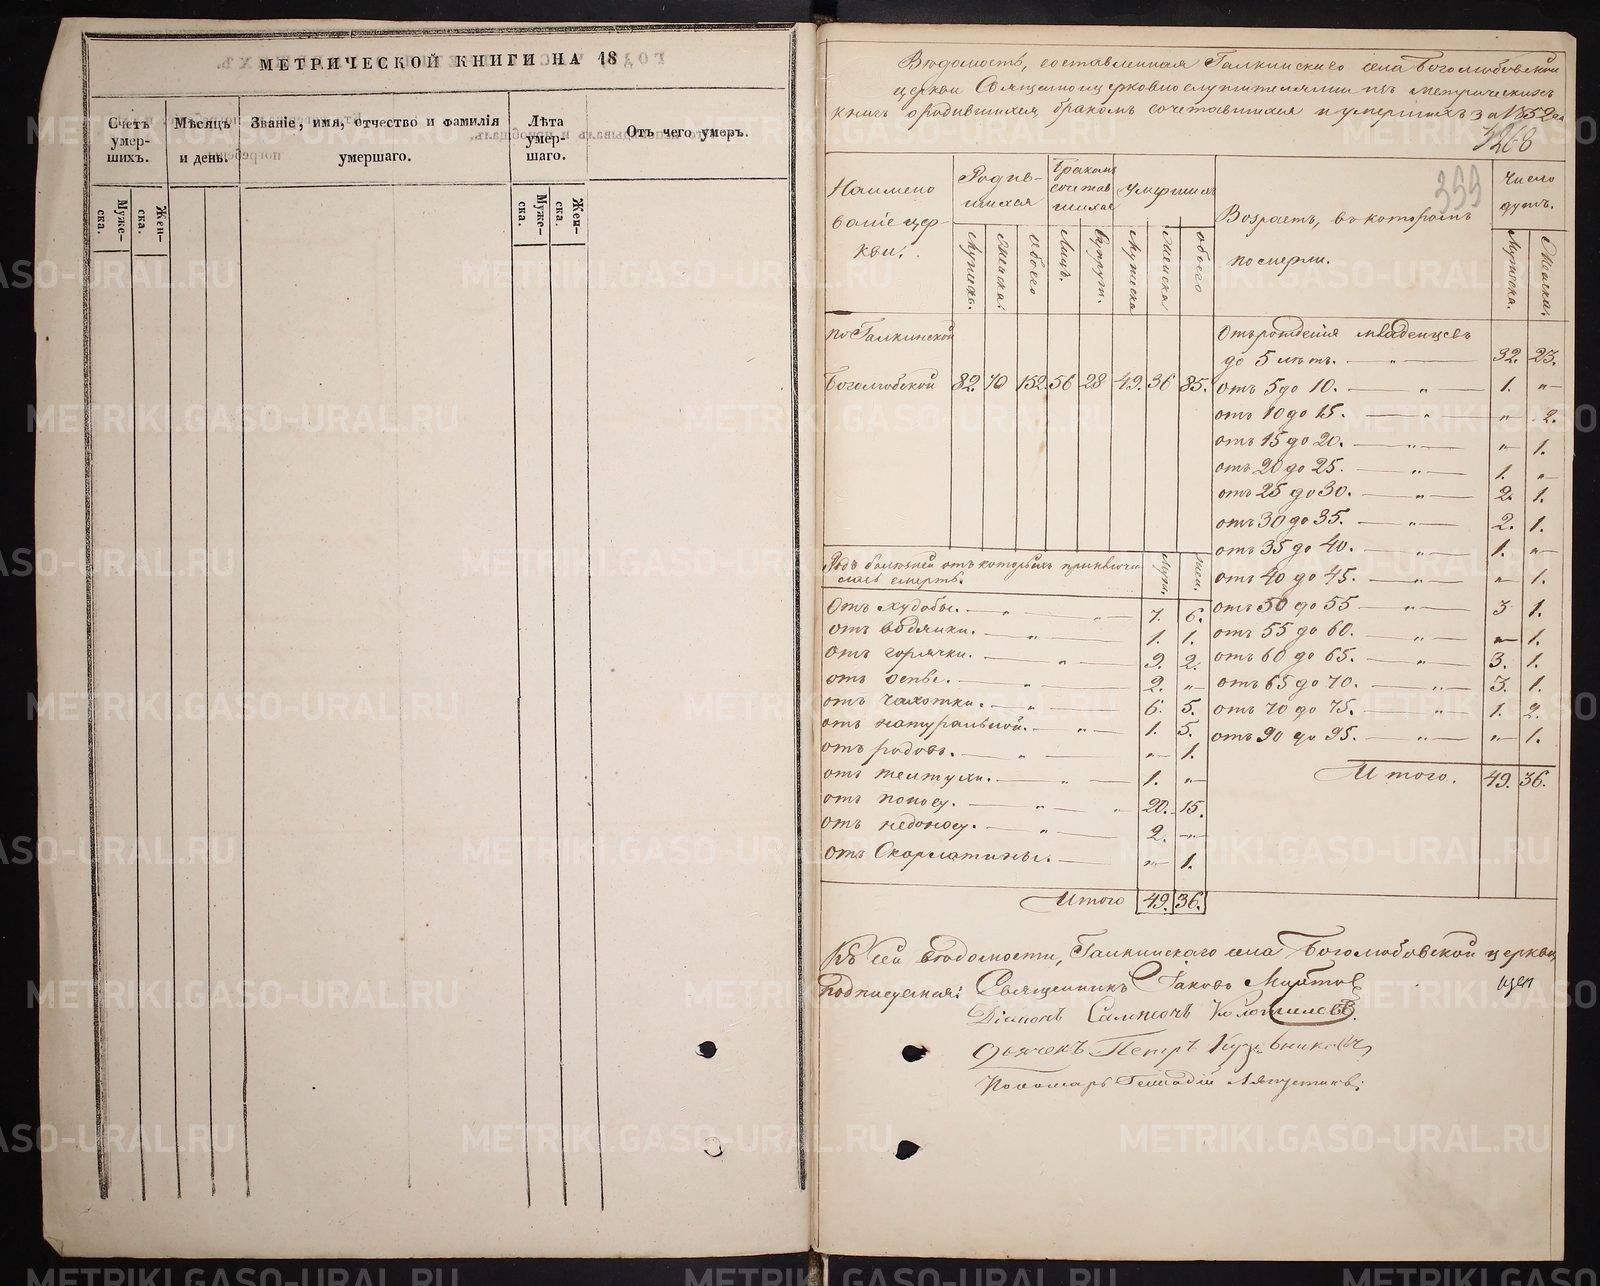 МЕТРИЧЕСКОЙ КНИГИ НА 18
Счетъ умер-шихъ.
Муже-ска.
Жен-ска.
Мѣсяцъ и день.
Званіе, имя, отчество и фамилія умершаго.
Лѣта умер-шаго.
Муже-ска.
Жен-ска.
Отъ чего умеръ.
Вѣдомость, составленная Галкинскаго села Боголюбовской
церкви Священноцерковнослужителями изъ метрическихъ
книгъ о родившихся, бракомъ сочетавшихся и умершихъ за 1852 годъ
268
399
Наименованіе церкви.
Родившихся
Мужска.
Женска.
Обоего
Бракомъ сочетавшихся
Лицъ.
Супруж.
Умершихъ
Мужска
Женска
обоего
Возрастъ, въ которомъ
померли.
Число душъ.
Мужска.
Женска.
по Галкинской
Боголюбской 82. 70 152 56 28 49. 36 85.
Отъ рожденія младенцевъ
до 5 лѣтъ. — „ — 32. 23.
отъ 5 до 10. — „ — 1. „
отъ 10 до 15. — „ — „ 2.
отъ 15 до 20. — „ — „ 1.
отъ 20 до 25. — „ — 1. „
отъ 25 до 30. — „ — 2. 1.
отъ 30 до 35. — „ — 2. 1.
отъ 35 до 40. — „ — 1. „
отъ 40 до 45. — „ — „ 1.
отъ 50 до 55 — „ — 3 1.
отъ 55 до 60. — „ — „ 1.
отъ 60 до 65. — „ — 3. 1.
отъ 65 до 70. — „ — 3. 1.
отъ 70 до 75. — „ — 1. 2.
отъ 90 до 95. — „ — „ 1.
Итого. 49. 36.
Родъ болѣзней отъ которыхъ приключи
лась смерть.
Муж.
Жен.
Отъ худобы. — „ — „ — 7. 6.
отъ водянки. — „ — 1. 1.
отъ горячки. — „ — 9. 2.
отъ оспы. — „ — 2. „
отъ чахотки. — „ — 6. 5.
отъ натуральной. — „ — 1. 5.
отъ родовъ. — „ — „ 1.
отъ желтухи. — „ — 1. „
отъ поносу. — „ — „ 20. 15.
отъ недоносу. — „ — 2. „
отъ Скарлатины. — „ 1.
Итого 49. 36.
Къ сей вѣдомости, Галкинскаго села Боголюбовской церкви,
подписуемся: Священникъ Іаковъ
Діаконъ Сампсонъ
Дьячекъ Петръ
Пономарь Геннадій Ляпустинъ:
METRIKI.GASO-URAL.RU